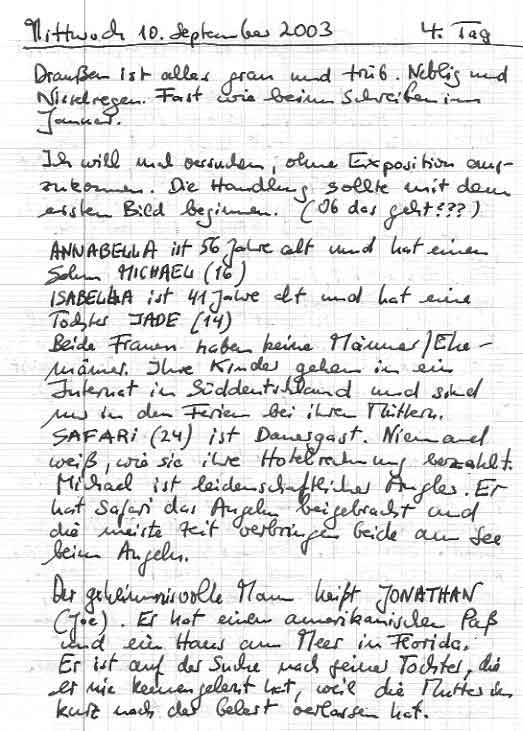 Mittwoch 10. September 2003 4. Tag
Draußen ist alles grau und trüb. Neblig und
Nieselregen. Fast wie beim Schreiben im
Januar.
Ich will mal versuchen, ohne Exposition aus-
zukommen. Die Handlung sollte mit dem
ersten Bild beginnen. (Ob das geht???)
ANNABELLA ist 56 Jahre alt und hat einen
Sohn MICHAEL (16)
ISABELLA ist 41 Jahre alt und hat eine
Tochter JADE (14)
Beide Frauen haben keine Männer/Ehe-
männer. Ihre Kinder gehen in ein
Internat in Süddeutschland und sind
nur in den Ferien bei ihren Müttern.
SAFARI (24) ist Dauergast. Niemand
weiß, wie sie ihre Hotelrechnung bezahlt.
Michael ist leidenschaftlicher Angler. Er
hat Safari das Angeln beigebracht und
die meiste Zeit verbringen beide am See
beim Angeln.
Der geheimnisvolle Mann heißt JONATHAN
(Joe). Er hat einen amerikanischen Paß
und ein Haus am Meer in Florida.
Er ist auf der Suche nach seiner Tochter, die
er nie kennengelernt hat, weil die Mutter ihn
kurz nach der Geburt verlassen hat.